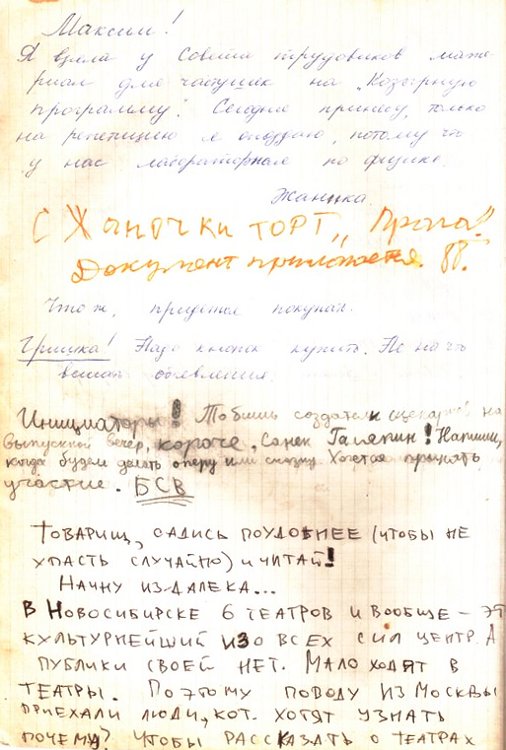 Максим!
Я взяла у Совета трудовиков мате-
риал для частушек на „Козырную
программу". Сегодня принесу, только
на репетицию я опоздаю, потому что
у нас лабораторная по физике.
Жаннка.
С Жаночки торт „Прага"!
Документ прилагается.
Что ж, придётся покупать.
Гришка! Надо кнопок купить. Не на что
вешать объявления.
Инициаторы! То бишь создатели сценария на
выпускной вечер, короче, Санек Галяпин! Напиши,
когда будем делать оперу или сказку. Хочется принять
участие. БСВ
Товарищ, садись поудобнее (чтобы не
упасть случайно) и читай!
Начну издалека...
В Новосибирске 6 театров и вообще - эт
культурнейший изо всех сил центр. А
публики своей нет. Мало ходят в
театры. Поэтому поводу из Москвы
приехали люди, кот. хотят узнать
почему? Чтобы рассказать о театрах